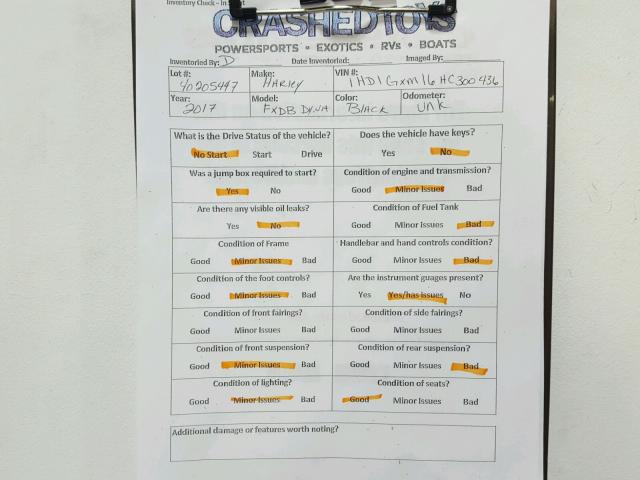 Inventory Check – In
CRASHEDTOYS
POWERSPORTS • EXOTICS • RVs • BOATS
Inventoried By: D Date Inventoried: Imaged By:
Lot #: 40205497 Make: HARLEY VIN #: 1HD1GXM16HC300436
Year: 2017 Model: FXDB DYNA Color: BLACK Odometer: UNK
What is the Drive Status of the vehicle? Does the vehicle have keys?
No Start Start Drive Yes No
Was a jump box required to start? Condition of engine and transmission?
Yes No Good Minor Issues Bad
Are there any visible oil leaks? Condition of Fuel Tank
Yes No Good Minor Issues Bad
Condition of Frame Handlebar and hand controls condition?
Good Minor Issues Bad Good Minor Issues Bad
Condition of the foot controls? Are the instrument guages present?
Good Minor Issues Bad Yes Yes/has issues No
Condition of front fairings? Condition of side fairings?
Good Minor Issues Bad Good Minor Issues Bad
Condition of front suspension? Condition of rear suspension?
Good Minor Issues Bad Good Minor Issues Bad
Condition of lighting? Condition of seats?
Good Minor Issues Bad Good Minor Issues Bad
Additional damage or features worth noting?